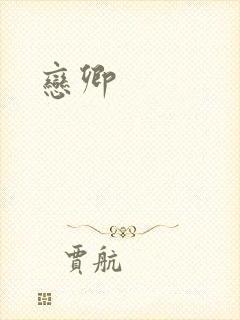 戀卿
賈航